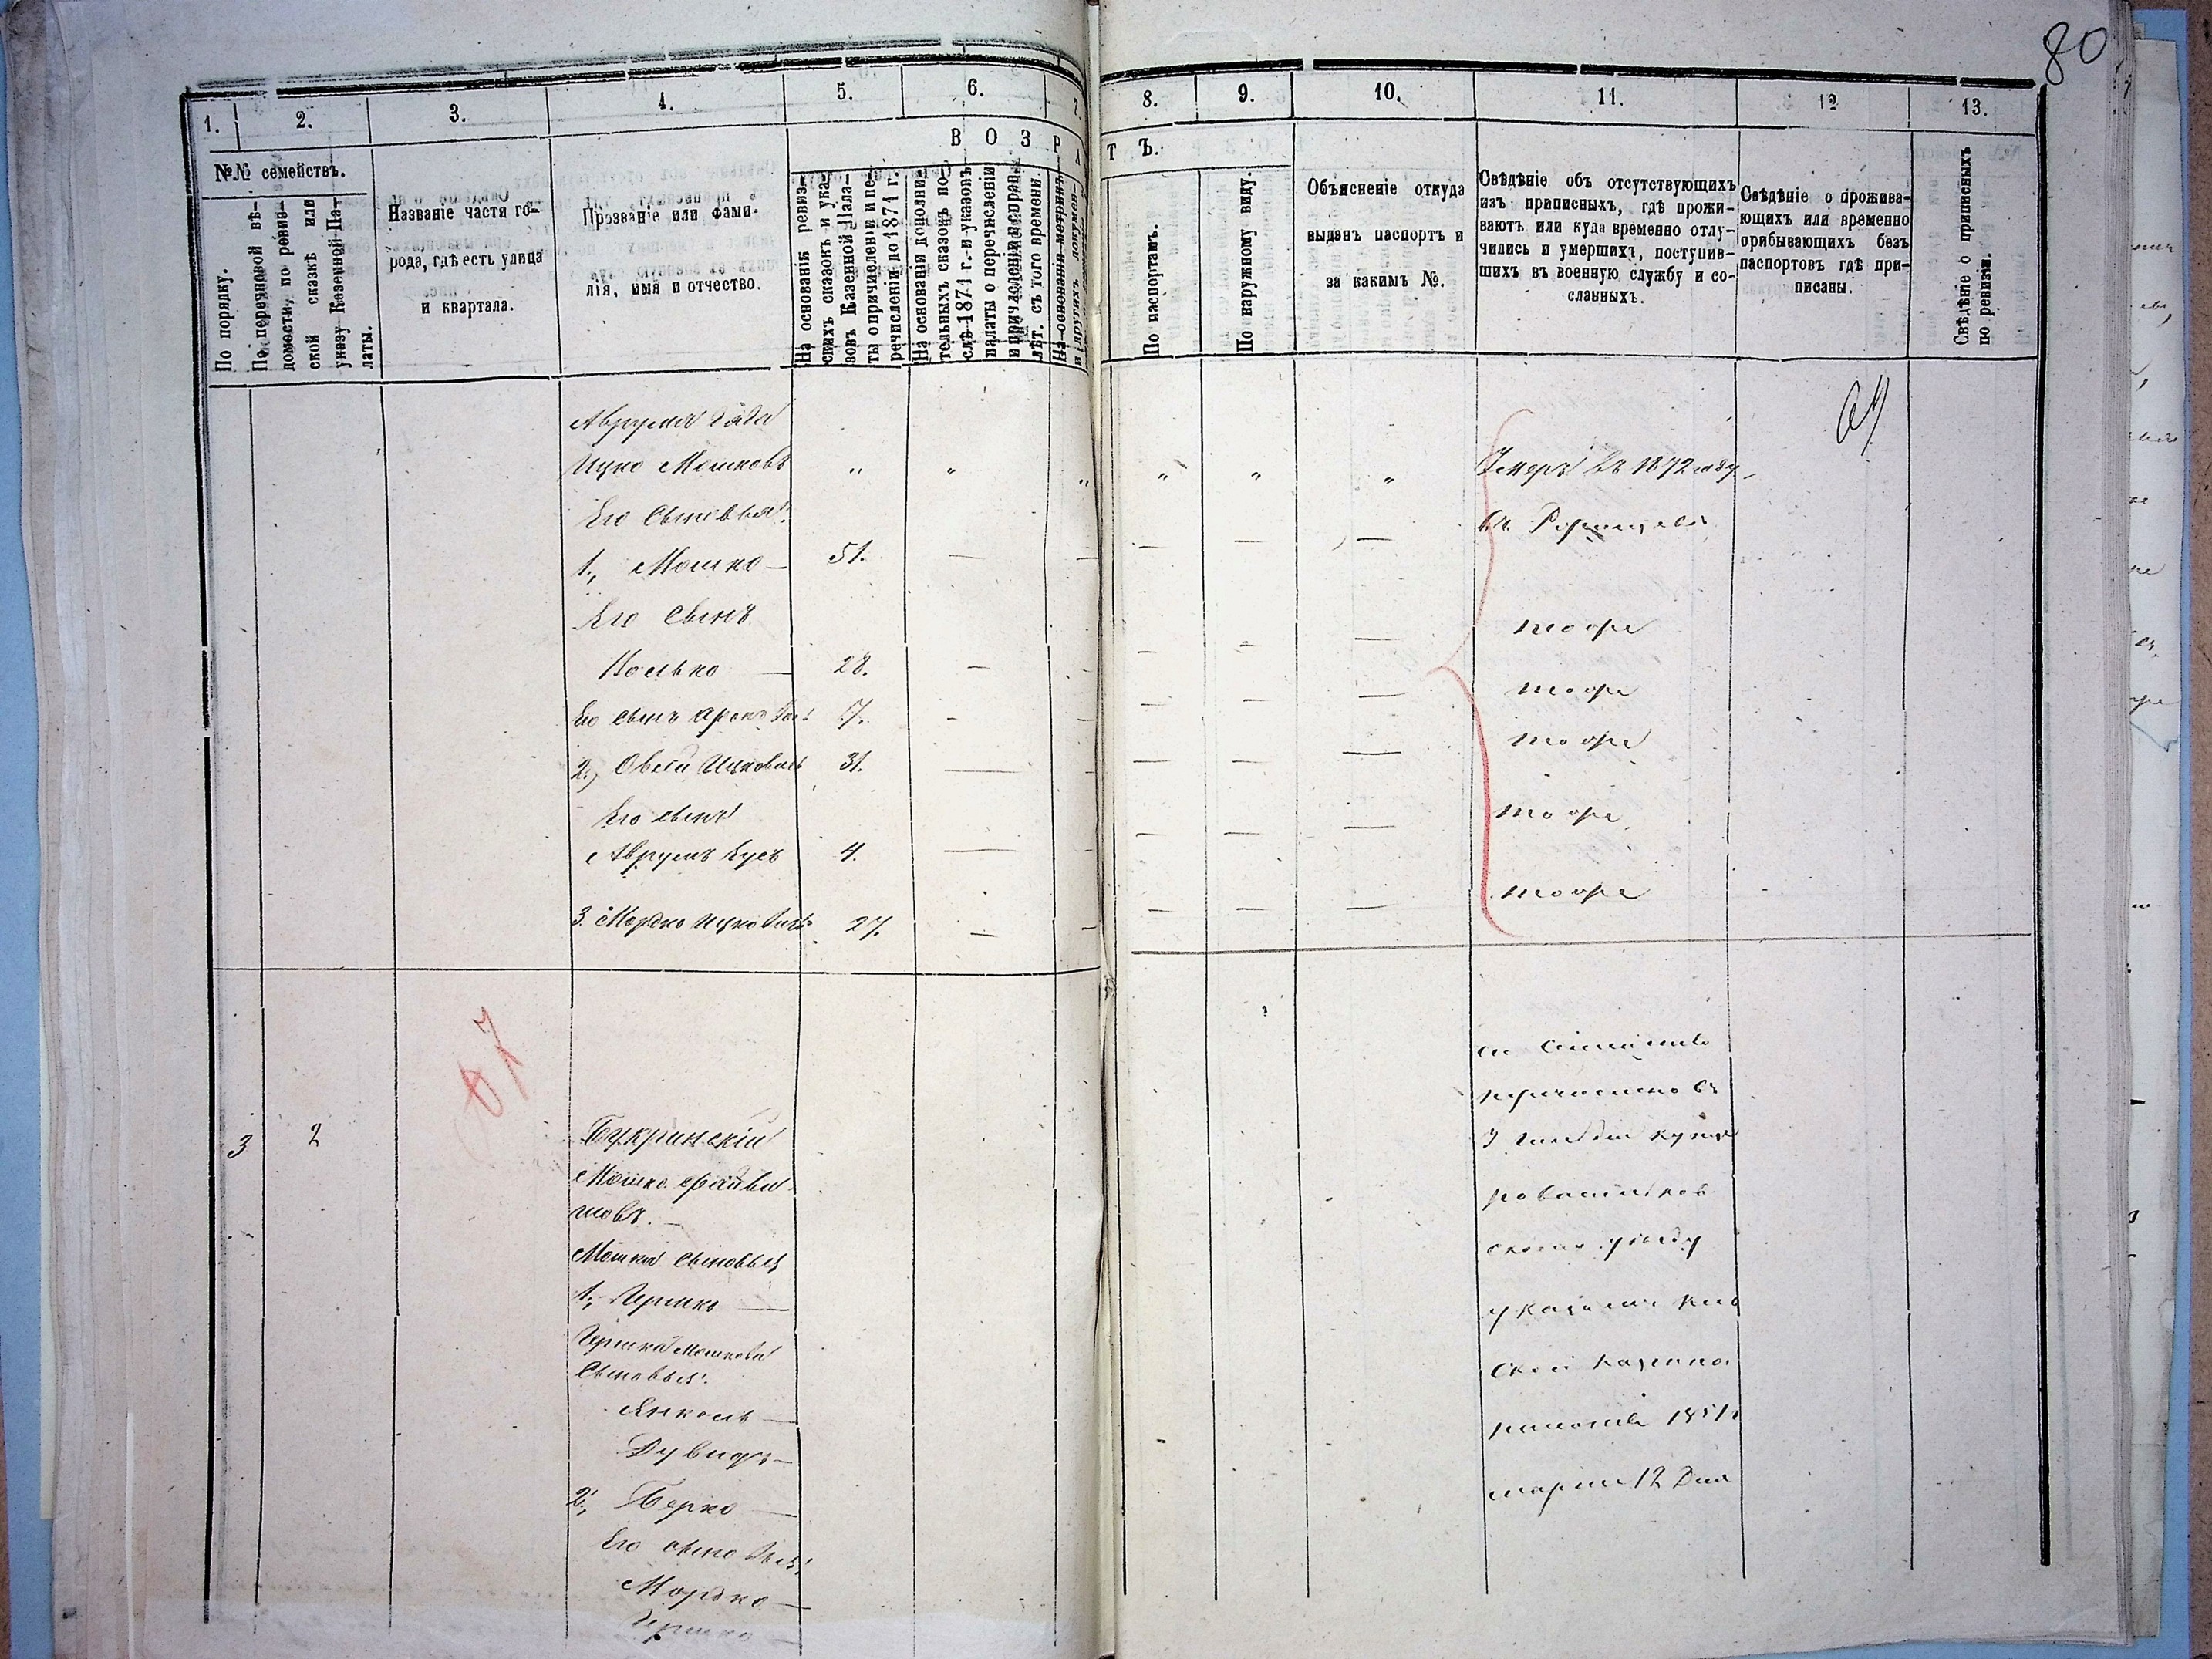 80
1.
2.
3.
4.
5.
6.
7.
8.
9.
10.
11.
12
13.
№№ семействъ.
В О З Р А
Т Ъ.
По порядку.
По переписной вѣ-
домости, по ревиз-
ской сказкѣ или
указу Казенной Па-
латы.
Названіе части го-
рода, гдѣ есть улица
и квартала.
Прозваніе или фами-
лія, имя и отчество.
На основаніи ревиз-
скихъ сказокъ и ука-
зовъ Казенной Пала-
ты о причисленіи и пе-
речисленіи до 1871 г.
На основаніи дополни-
тельныхъ сказокъ по-
слѣ 1871 г. и указовъ
палаты о перечисленіи
и причисленіи
лѣт. съ того времени.
На основаніи метрикъ
и другихъ докумен-
По паспортамъ.
По наружному виду.
Объясненіе откуда
выданъ паспортъ и
за какимъ №.
Свѣдѣніе объ отсутствующихъ
изъ приписныхъ, гдѣ прожи-
ваютъ или куда временно отлу-
чились и умершихъ, поступив-
шихъ въ военную службу и со-
сланныхъ.
Свѣдѣніе о прожива-
ющихъ или временно
прибывающихъ безъ
паспортовъ гдѣ при-
писаны.
Свѣдѣніе о приписныхъ
по ревизіи.
Аврума
Ицко Мошковъ " " " " " " Умеръ въ 1872 году
Его Сыновья:
1., Мошко — 51. — — — — —
Его Сынъ тоже
Іосько — 28. — — — — — тоже
Его сынъ 7. - — — — — тоже
2., Овсѣй Ицковъ 31. — — — — —
Его сынъ тоже
Аврумъ 4. — — — — —
3. Мордко Ицковичъ 27. — — — — — тоже
3 2
Букринскій
Мошко Файви
шовъ. —
Мошки Сыновья
1., Гершко —
Гершка Мошкова
Сыновья:
Янкель —
Дувидъ —
2., Берко —
Его сыновья:
Мордко —
Гершко —
перечислено въ
3 гильдии
уѣзду
ской казенной
палаты 1851
марта 12 Дня